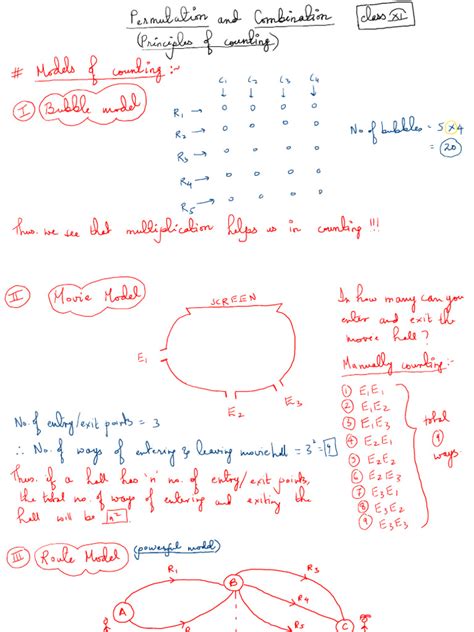 Permutation and Combination
class XI
(Principles of counting)
# Models of counting :-
I Bubble model
C1 C2 C3 C4
R1 →
R2 →
R3 →
R4 →
R5 →
No of bubbles = 5 x 4
= 20
Thus. we see that multiplication helps us in counting !!!
II Movie Model
SCREEN
E1
E2
E3
In how many can you
enter and exit the
movie hall ?
Manually counting :-
1 E1E1
2 E1E2
3 E1E3
4 E2E1
5 E2E2
6 E2E3
7 E3E1
8 E3E2
9 E3E3
total
9
ways
No. of entry/exit points = 3
∴ No. of ways of entering & leaving movie hall = 3² = 9
Thus. if a hall has 'n' no. of entry/exit points,
the total no. of ways of entering and exiting the
hall will be n²
III Route Model
(powerful model)
R1
R3
R4
R5
A
B
C